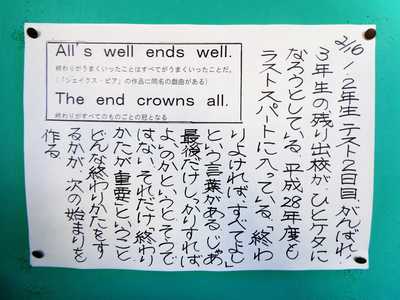 2/16
1、2年生テスト2日目。がんばれ!
3年生の残り出校が、ひとケタに
なろうとしている。平成28年度も
ラストスパートに入っている。「終わ
りよければ、すべてよし」
という言葉がある。じゃあ、
最後だけしっかりすれば
よいのかというと、そうで
はない。それだけ「終わり
かたが重要」ということ。
どんな終わりかたをす
るかが、次の始まりを
作る。
All's well ends well.
終わりがうまくいったことはすべてがうまくいったことだ。
(「シェイクス・ピア」の作品に同名の戯曲がある)
The end crowns all.
終わりがすべてのものごとの冠となる